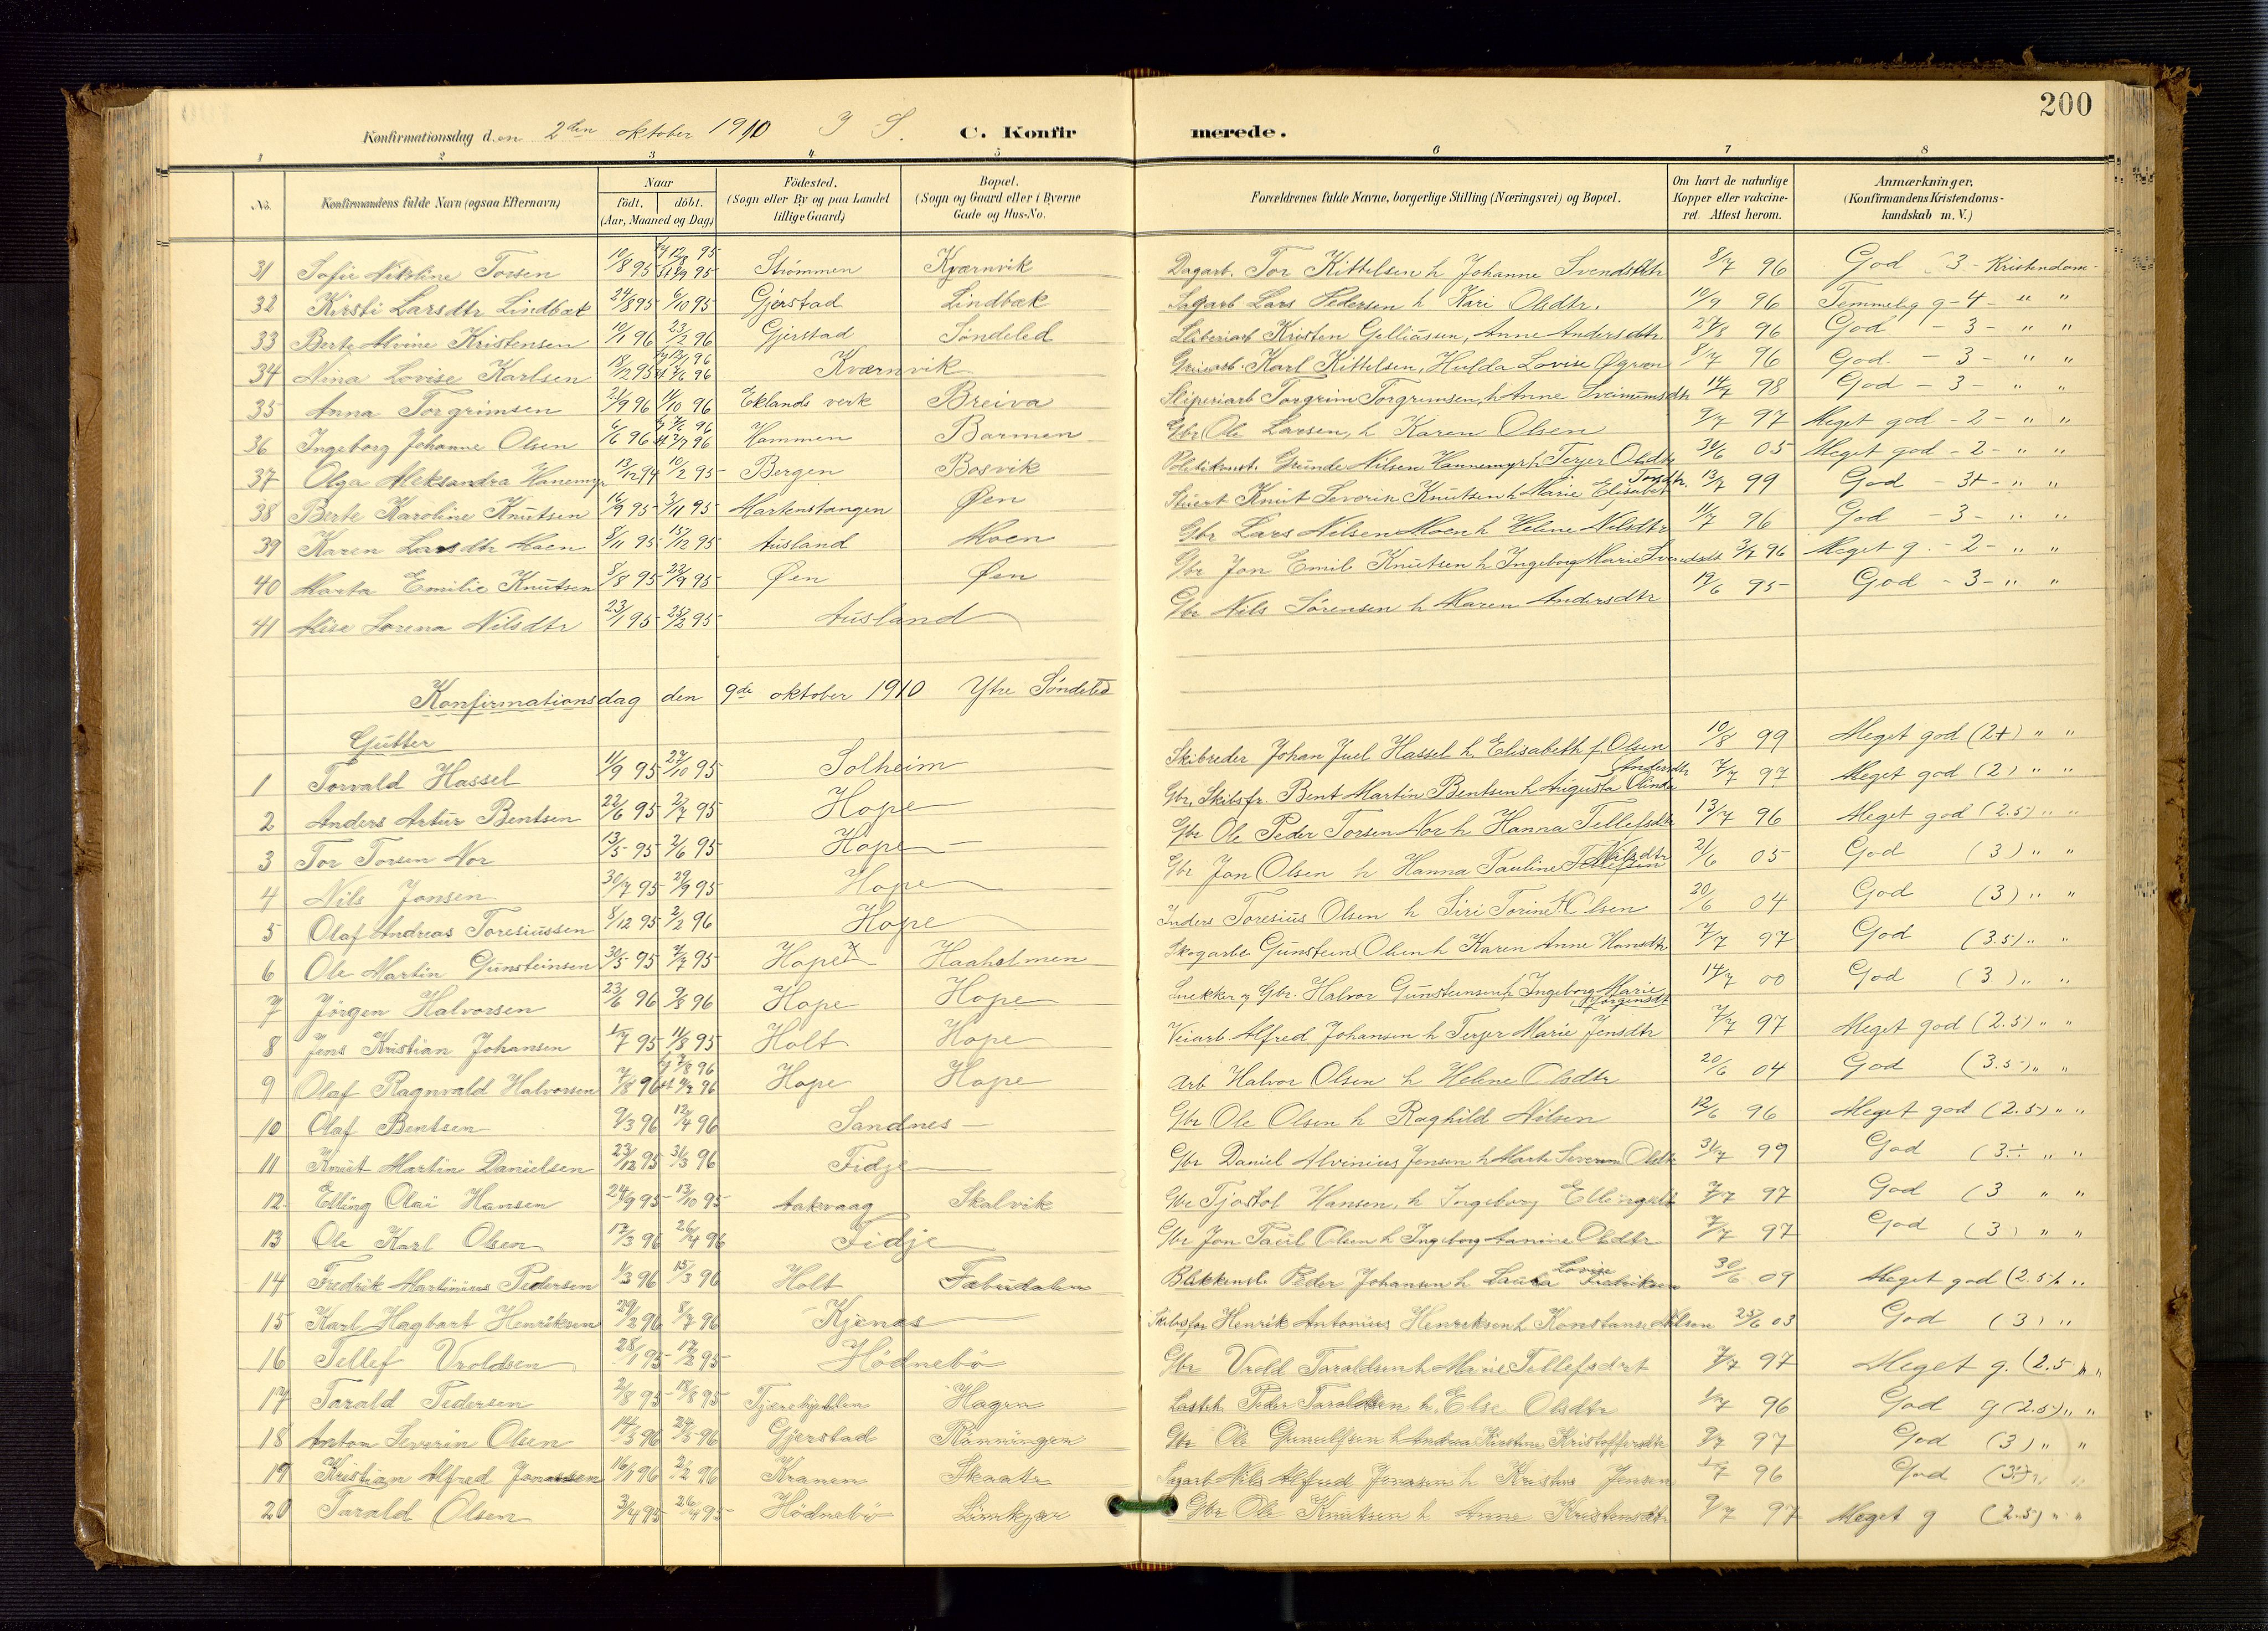 200
Konfirmationsdag den 2den oktober 1910 I S. C. Konfirmerede.
1 2 3 4 5 6 7 8
No. Konfirmandens fulde Navn (ogsaa Efternavn) Naar födt. döbt. (Aar, Maaned og Dag) Födested. (Sogn eller By og paa Landet tillige Gaard) Bopæl. (Sogn og Gaard eller i Byerne Gade og Hus-No. Forældrenes fulde Navne, borgerlige Stilling (Næringsvei) og Bopæl. Om havt de naturlige Kopper eller vakcineret. Attest herom. Anmærkninger. (Konfirmandens Kristendomskundskab m. V.)
31 Sofie Nikoline Torsen 10/8 95 Strömmen Kværnvik Dagarb. Tor Kittelsen h Johanne Svendsdtr 8/7 96 God 3 - Kristendom -
32 Kirsti Larsdtr Lindbæk 24/8 95 6/10 95 Gjerstad Lindbæk Sagarb Lars Pedersen h Kari Olsdtr. 10/9 96 Temmelig g - 4 - " "
33 Berte Alvine Kristensen 10/1 96 23/2 96 Gjerstad Søndeled Sliberiarb Kristen Gulliksen, Anne Andersdtr 96 God - 3 - " "
34 Nina Lovise Karlsen 18/12 95 Kværnvik Karl Kittelsen, Hulda Lovise Øgræn 8/7 96 God. - 3 - " "
35 Anna Torgrimsen 21/9 96 11/10 96 Eklands verk Breiva Sliperiarb Torgrim Torgrimsen, h Anne 14/7 98 God - 3 - " "
36 Ingeborg Johanne Olsen 6/6 96 Hammen Barmen Gbr Ole Larsen, h Karen Olsen 9/7 97 Meget god - 2 - " "
37 Olga Aleksandra Hanemyr 13/12 94 10/2 95 Bergen Bosvik Politikonst. Gunde Nilsen Hannemyr h Terjer Olsdtr 30/6 05 Meget god - 2 - " "
38 Berte Karoline Knutsen 16/9 95 3/11 95 Martenstangen Øen Stuert Knut Severin Knutsen h Marie Elisabet Torsdtr. 13/7 99 God - 3+ - " "
39 Karen Larsdtr Moen 8/11 95 15/12 95 Ausland Moen Gbr Lars Nilsen Moen h Helene Nilsdtr 11/7 96 God - 3 - " "
40 Marta Emilie Knutsen 8/8 95 22/9 95 Øen Øen Gbr Jon Emil Knutsen h Ingeborg Marie Svendsdt 3/7 96 Meget g. - 2 - " "
41 Alise Lorena Nilsdtr 23/1 95 Ausland Gbr Nils Sörensen h Maren Andersdtr 95 God - 3 - " "
Konfirmationsdag den 9de oktober 1910 Ytre Söndeled
Gutter
1 Torvald Hassel 11/9 95 27/10 95 Solheim Skibreder Johan Juel Hassel h. Elisabeth f. Olsen 10/8 99 Meget god (2+) " "
2 Anders Artur Bentsen 22/6 95 Hope Gbr, Skibsfr. Bent Martin Bentsen h Augusta Olinda Andersdtr 7/7 97 Meget god (2) " "
3 Tor Torsen Nor 13/5 95 2/6 95 Hope Gbr Ole Peder Torsen Nor h Hanna Tellefsdtr 13/7 96 Meget god (2.5) " "
4 Nils Jonsen 30/7 95 29/9 95 Hope Gbr Jon Olsen h Hanna Pauline Nilsdtr 21/6 05 God (3) " "
5 Olaf Andreas Toresiussen 8/12 95 2/2 96 Hope Inders Toresius Olsen h Siri Torine Olsen 20/6 04 God (3) " "
6 Ole Martin Gunsteinsen 30/5 95 7/7 95 Hope Haaholmen Skogarb. Gunstein Olsen h Karen Anne Hansdtr 7/7 97 God (3.5) " "
7 Jörgen Halvorsen 23/6 96 9/8 96 Hope Hope Snekker og Gbr. Halvor Gunsteinsen h Ingeborg Marie Jörgensdt 14/7 00 God (3) " "
8 Jens Kristian Johansen 1/7 95 11/8 95 Holt Hope Veiarb. Alfred Johansen h Terjer Marie Jensdtr 7/7 97 Meget god (2.5) " "
9 Olaf Ragnvald Halvorsen 7/8 96 Hope Hope Arb Halvor Olsen h Helene Olsdtr 20/6 04 God (3.5) " "
10 Olaf Bentsen 9/3 96 12/4 96 Sandnes Gbr Ole Olsen h Raghild Nilsen 12/6 96 Meget god (2.5) " "
11 Knut Martin Danielsen 23/12 95 96 Fidje Gbr Daniel Alvinius Jensen h Marte Severine Olsdtr 31/7 99 God (3÷ " "
12. Elling Olai Hansen 24/9 95 13/10 95 Aakvaag Skalvik Gbr Tjostol Hansen, h Ingeborg Ellingsdt 7/7 97 God (3 " "
13 Ole Karl Olsen 17/3 96 26/4 96 Fidje Gbr Jon Paul Olsen h Ingeborg Aanine Olsdtr 7/7 97 God (3) " "
14 Fredrik Martinius Pedersen 1/3 96 15/3 96 Holt Peder Johansen h Laura Lovise Fredriksen 30/6 09 Meget god (2.5) " "
15 Karl Hagbart Henriksen 29/2 96 8/7 96 Kjenas Skibsfør Henrik Antonius Henriksen h Konstanse Nilsen 25/6 03 God (3) "
16 Tellef Vroldsen 28/1 95 17/2 95 Hödnebö Gbr Vrold Taraldsen h Marie Tellefsdtr 7/7 97 Meget g. (2.5 " "
17 Tarald Pedersen 2/8 95 18/8 95 Hagen Peder Taraldsen h. Else Olsdtr 1/7 96 God g (2.5) " "
18 Anton Severin Olsen 14/3 96 96 Gjerstad Rönningen Gbr Ole Gunulfsen h Andrea Kirstine Kristoffersdtr 9/7 97 God (3) " "
19 Kristian Alfred Jonassen 16/1 96 2/2 96 Kranen Skaate Sagarb Nils Alfred Jonasen h Kristine Jensen 96 God
20 Tarald Olsen 3/4 95 26/4 95 Hödnebö Lönkjær Gbr Ole Knutsen h Anne Kristensdtr 9/7 97 Meget g (2.5) " "